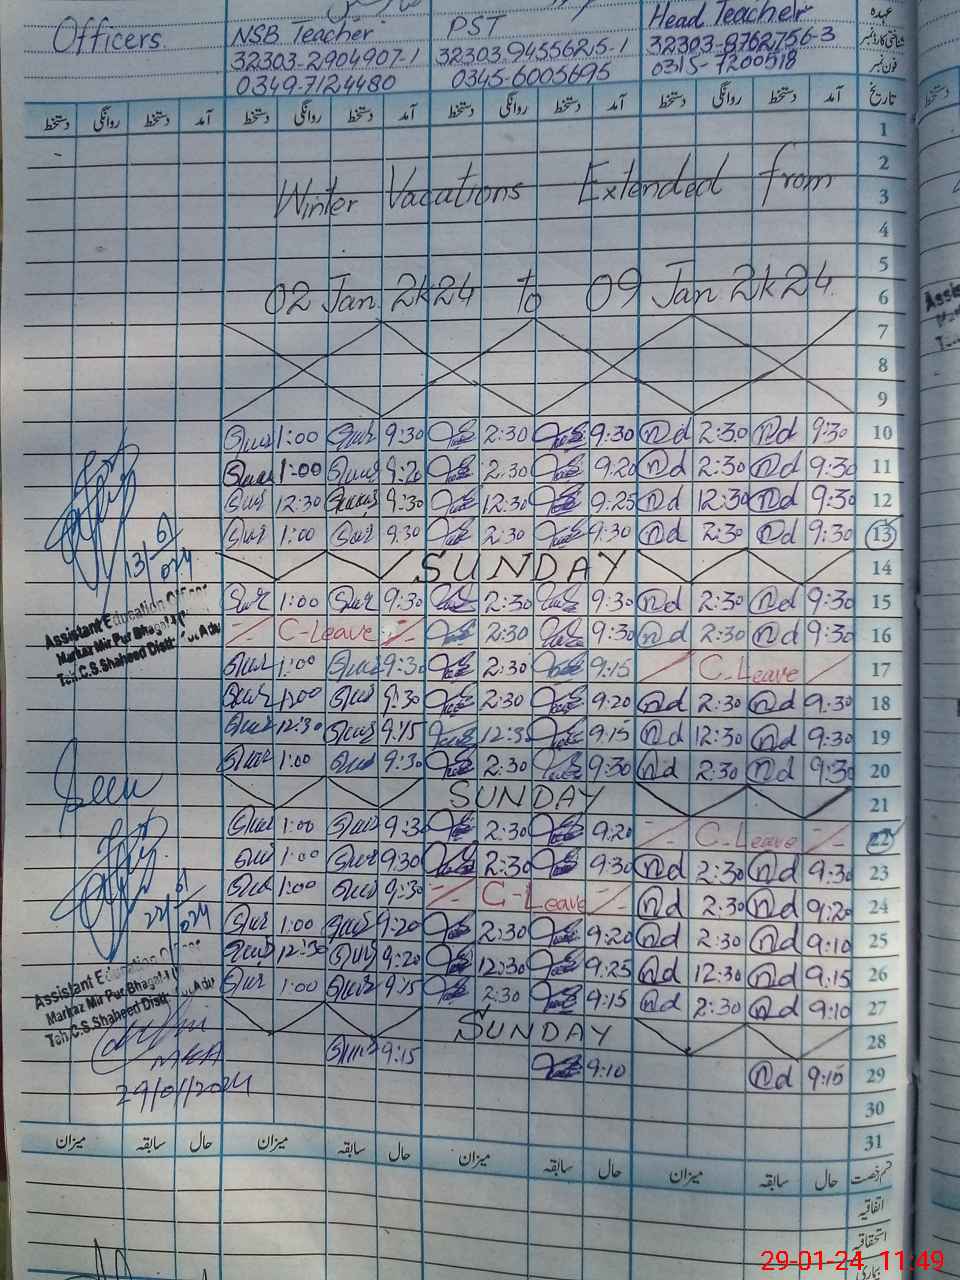 Officers. NSB Teacher PST Head Teacher عہدہ
32303-2904907-1 32303.9455625-1 32303-8762756-3 شناختی کارڈ نمبر
0349-7124480 0345-6005695 0315-7200518 فون نمبر
دستخط روانگی دستخط آمد دستخط روانگی دستخط آمد دستخط روانگی دستخط آمد دستخط روانگی دستخط آمد تاریخ
1
2
Winter Vacations Extended from
3
4
5
02 Jan 2k24 to 09 Jan 2k24. 6
7
8
9
1:00 9:30 2:30 9:30 nd 2:30 nd 9:30 10
1:00 9:20 2:30 9:20 nd 2:30 nd 9:30 11
12:30 9:30 12:30 9:25 nd 12:30 nd 9:30 12
1:00 9:30 2:30 9:30 nd 2:30 nd 9:30 13
13/01/024
SUNDAY 14
1:00 9:30 2:30 9:30 nd 2:30 nd 9:30 15
Assistant Education Officer
Markaz Mir Pur Bhagal
Teh.C.S.Shaheed Distt
C-Leave 2:30 9:30 nd 2:30 nd 9:30 16
1:00 9:30 2:30 9:15 C-Leave 17
1:00 9:30 2:30 9:20 nd 2:30 nd 9:30 18
12:30 9:15 12:30 9:15 nd 12:30 nd 9:30 19
1:00 9:30 2:30 9:30 nd 2:30 nd 9:30 20
Seen
SUNDAY 21
1:00 9:30 2:30 9:20 C-Leave 22
1:00 9:30 2:30 9:30 nd 2:30 nd 9:30 23
1:00 9:30 C-Leave nd 2:30 nd 9:20 24
22/01/024
1:00 9:20 2:30 9:20 nd 2:30 nd 9:10 25
12:30 9:20 12:30 9:25 nd 12:30 nd 9:15 26
1:00 9:15 2:30 9:15 nd 2:30 nd 9:10 27
Assistant Education
Markaz Mir Pur Bhagal
Teh.C.S.Shaheed Distt
SUNDAY 28
9:15 9:10 nd 9:15 29
MEA
29/01/2024
30
31
میزان سابقہ حال میزان سابقہ حال میزان سابقہ حال میزان سابقہ حال قسم رخصت
اتفاقیہ
استحقاقیہ
بیماری
29-01-24 11:49